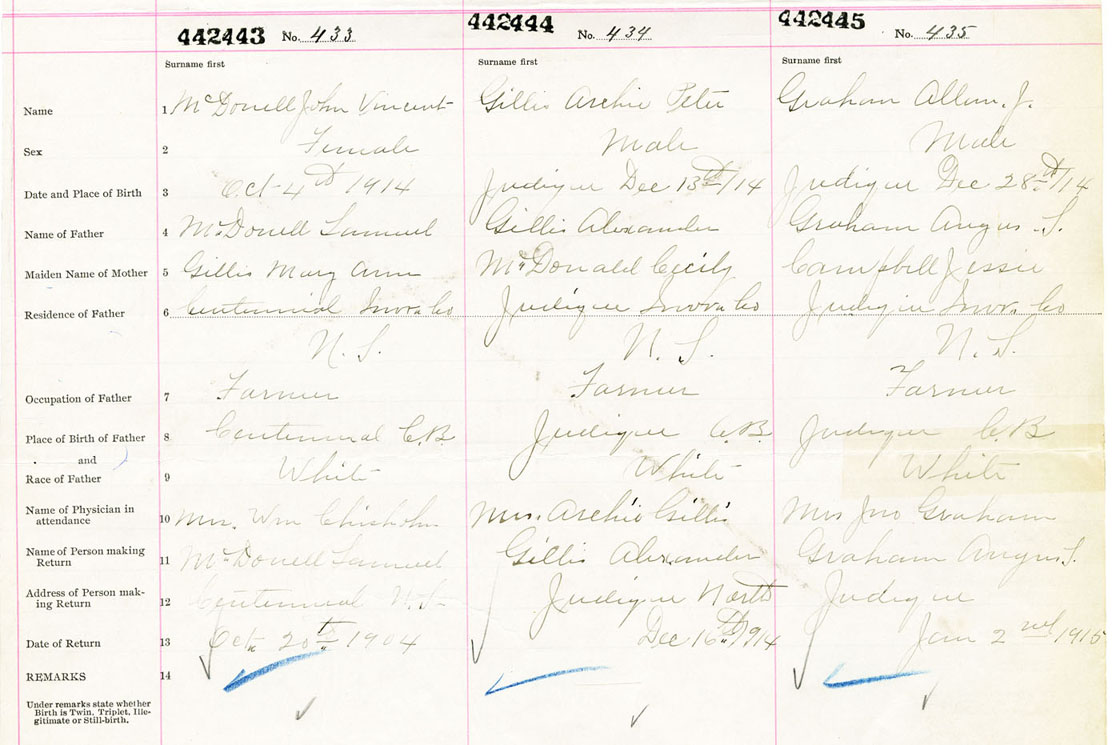 442443 No. 433 442444 No. 434 442445 No. 435
Surname first Surname first Surname first
Name 1 McDonell John Vincent Gillis Archie Peter Graham Allan. J.
Sex 2 Female Male Male
Date and Place of Birth 3 Oct 4th 1914 Judique Dec 13th/14 Judique Dec 28th/14
Name of Father 4 McDonell Samuel Gillis Alexander Graham Angus. S.
Maiden Name of Mother 5 Gillis Mary Ann McDonald Cecily Campbell Jessie
Residence of Father 6 Centennial Inver. Co Judique Inver. Co Judique Inver. Co
N. S. N. S. N. S.
Occupation of Father 7 Farmer Farmer Farmer
Place of Birth of Father 8 Centennial C.B. Judique C.B. Judique C.B
and
Race of Father 9 White White White
Name of Physician in
attendance 10 Mrs. Wm Chisholm Mrs. Archie Gillis Mrs Jno Graham
Name of Person making
Return 11 McDonell Samuel Gillis Alexander Graham Angus S.
Address of Person mak-
ing Return 12 Centennial Judique North Judique
Date of Return 13 Oct. 20th 1904 Dec 16th 1914 Jan 2nd 1915
REMARKS 14
Under remarks state whether
Birth is Twin, Triplet, Ille-
gitimate or Still-birth.